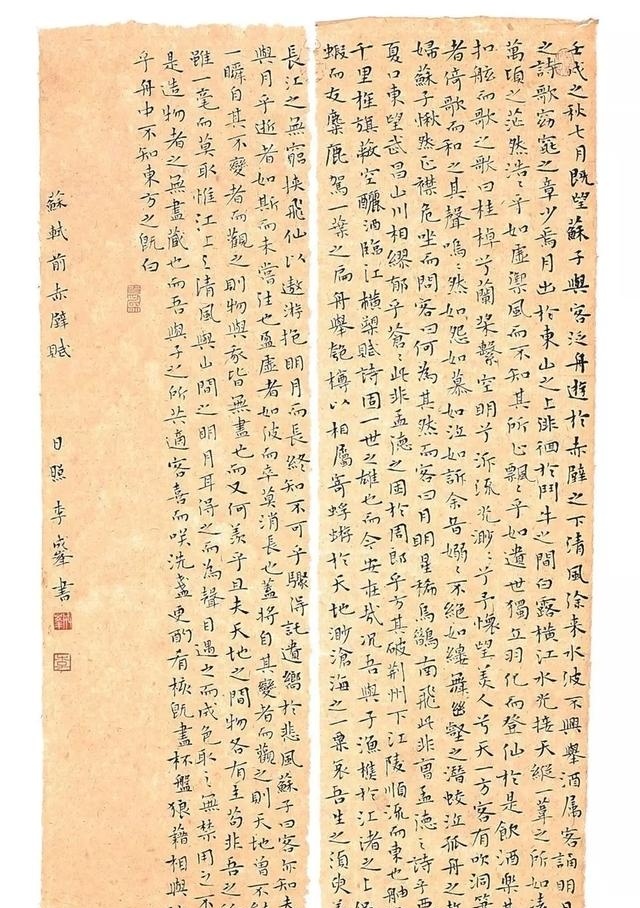 壬戌之秋七月既望蘇子與客泛舟遊於赤壁之下清風徐來水波不興舉酒属客誦明月
之詩歌窈窕之章少焉月出於東山之上徘徊於鬥牛之間白露橫江水光接天縱一葦之所如凌
萬頃之茫然浩〻乎如虛禦風而不知其所止飄〻乎如遺世獨立羽化而登仙於是飲酒樂甚
扣舷而歌之歌曰桂棹兮蘭槳擊空明兮泝流光渺〻兮予懷望美人兮天一方客有吹洞簫
者倚歌而和之其聲嗚〻然如怨如慕如泣如訴余音嫋〻不絕如縷舞幽壑之潛蛟泣孤舟之嫠
婦蘇子愀然正襟危坐而問客曰何為其然而客曰月明星稀烏鵲南飛此非曹孟德之詩乎西
夏口東望武昌山川相繆郁乎蒼〻此非孟德之困於周郎乎方其破荊州下江陵順流而東也舳
千里旌旗蔽空釃酒臨江橫槊賦詩固一世之雄也而今安在哉況吾與子漁樵於江渚之上侶
蝦而友麋鹿駕一葉之扁舟舉匏樽以相屬寄蜉蝣於天地渺滄海之一粟哀吾生之須臾羨
長江之無窮挾飛仙以遨游抱明月而長終知不可乎驟得託遺響於悲風蘇子曰客亦知夫
與月乎逝者如斯而未嘗往也盈虛者如彼而卒莫消長也蓋將自其變者而觀之則天地曾不
一瞬自其不變者而觀之則物與我皆無盡也而又何羨乎且夫天地之間物各有主苟非吾之
雖一毫而莫取惟江上之清風與山間之明月耳得之而為聲目遇之而成色取之無禁用之不
是造物者之無盡藏也而吾與子之所共適客喜而咲洗盞更酌肴核既盡杯盤狼藉相與
乎舟中不知東方之既白
蘇軾前赤壁賦 日照李峰書